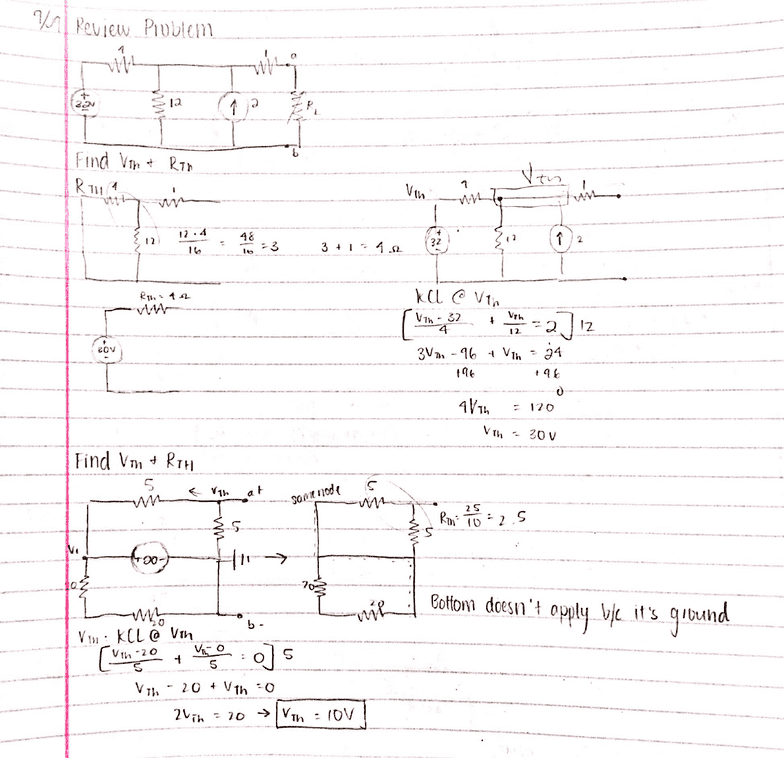 9/9 Review Problem
4 1 a
32v 12 2 RL
b
Find VTh + RTh
RTH 4 1
12 12·4/16 = 48/16 = 3 3 + 1 = 4 Ω
RTh = 4 Ω
30V
Vtn
VTh 4 1
32 12 2
KCL @ VTh
[VTh - 32/4 + VTh/12 = 2] 12
3VTh - 96 + VTh = 24
+96 +96
0
4VTh = 120
VTh = 30V
Find VTh + RTH
5 ← VTh a+
5
V1
20 b-
same node 5
5
RTh = 25/10 = 2.5
20 20
Bottom doesn't apply b/c it's ground
VTh: KCL @ VTh
[VTh - 20/5 + VTh - 0/5 = 0] 5
VTh - 20 + VTh = 0
2VTh = 20 → VTh = 10V